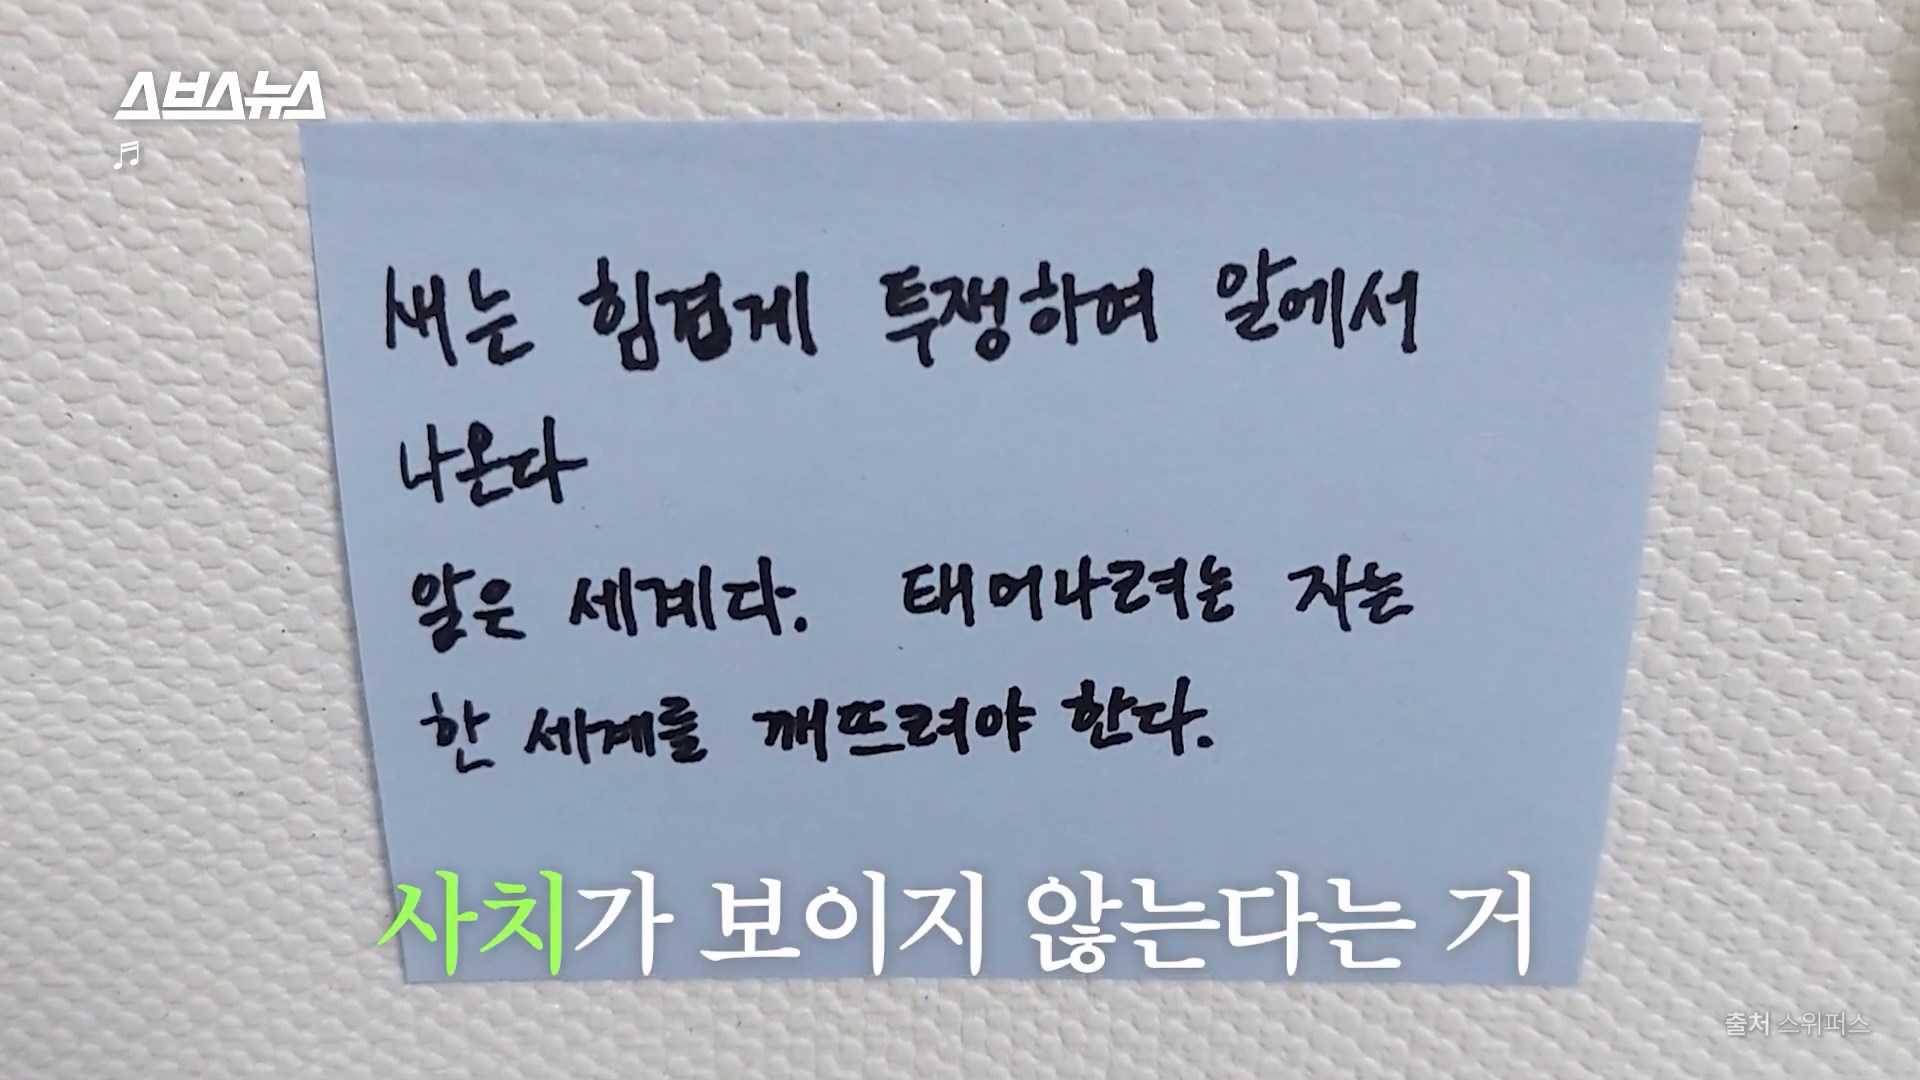 스브스뉴스
새는 힘겹게 투쟁하여 알에서
나온다
알은 세계다. 태어나려는 자는
한 세계를 깨뜨려야 한다.
사치가 보이지 않는다는 거
출처 스위퍼스